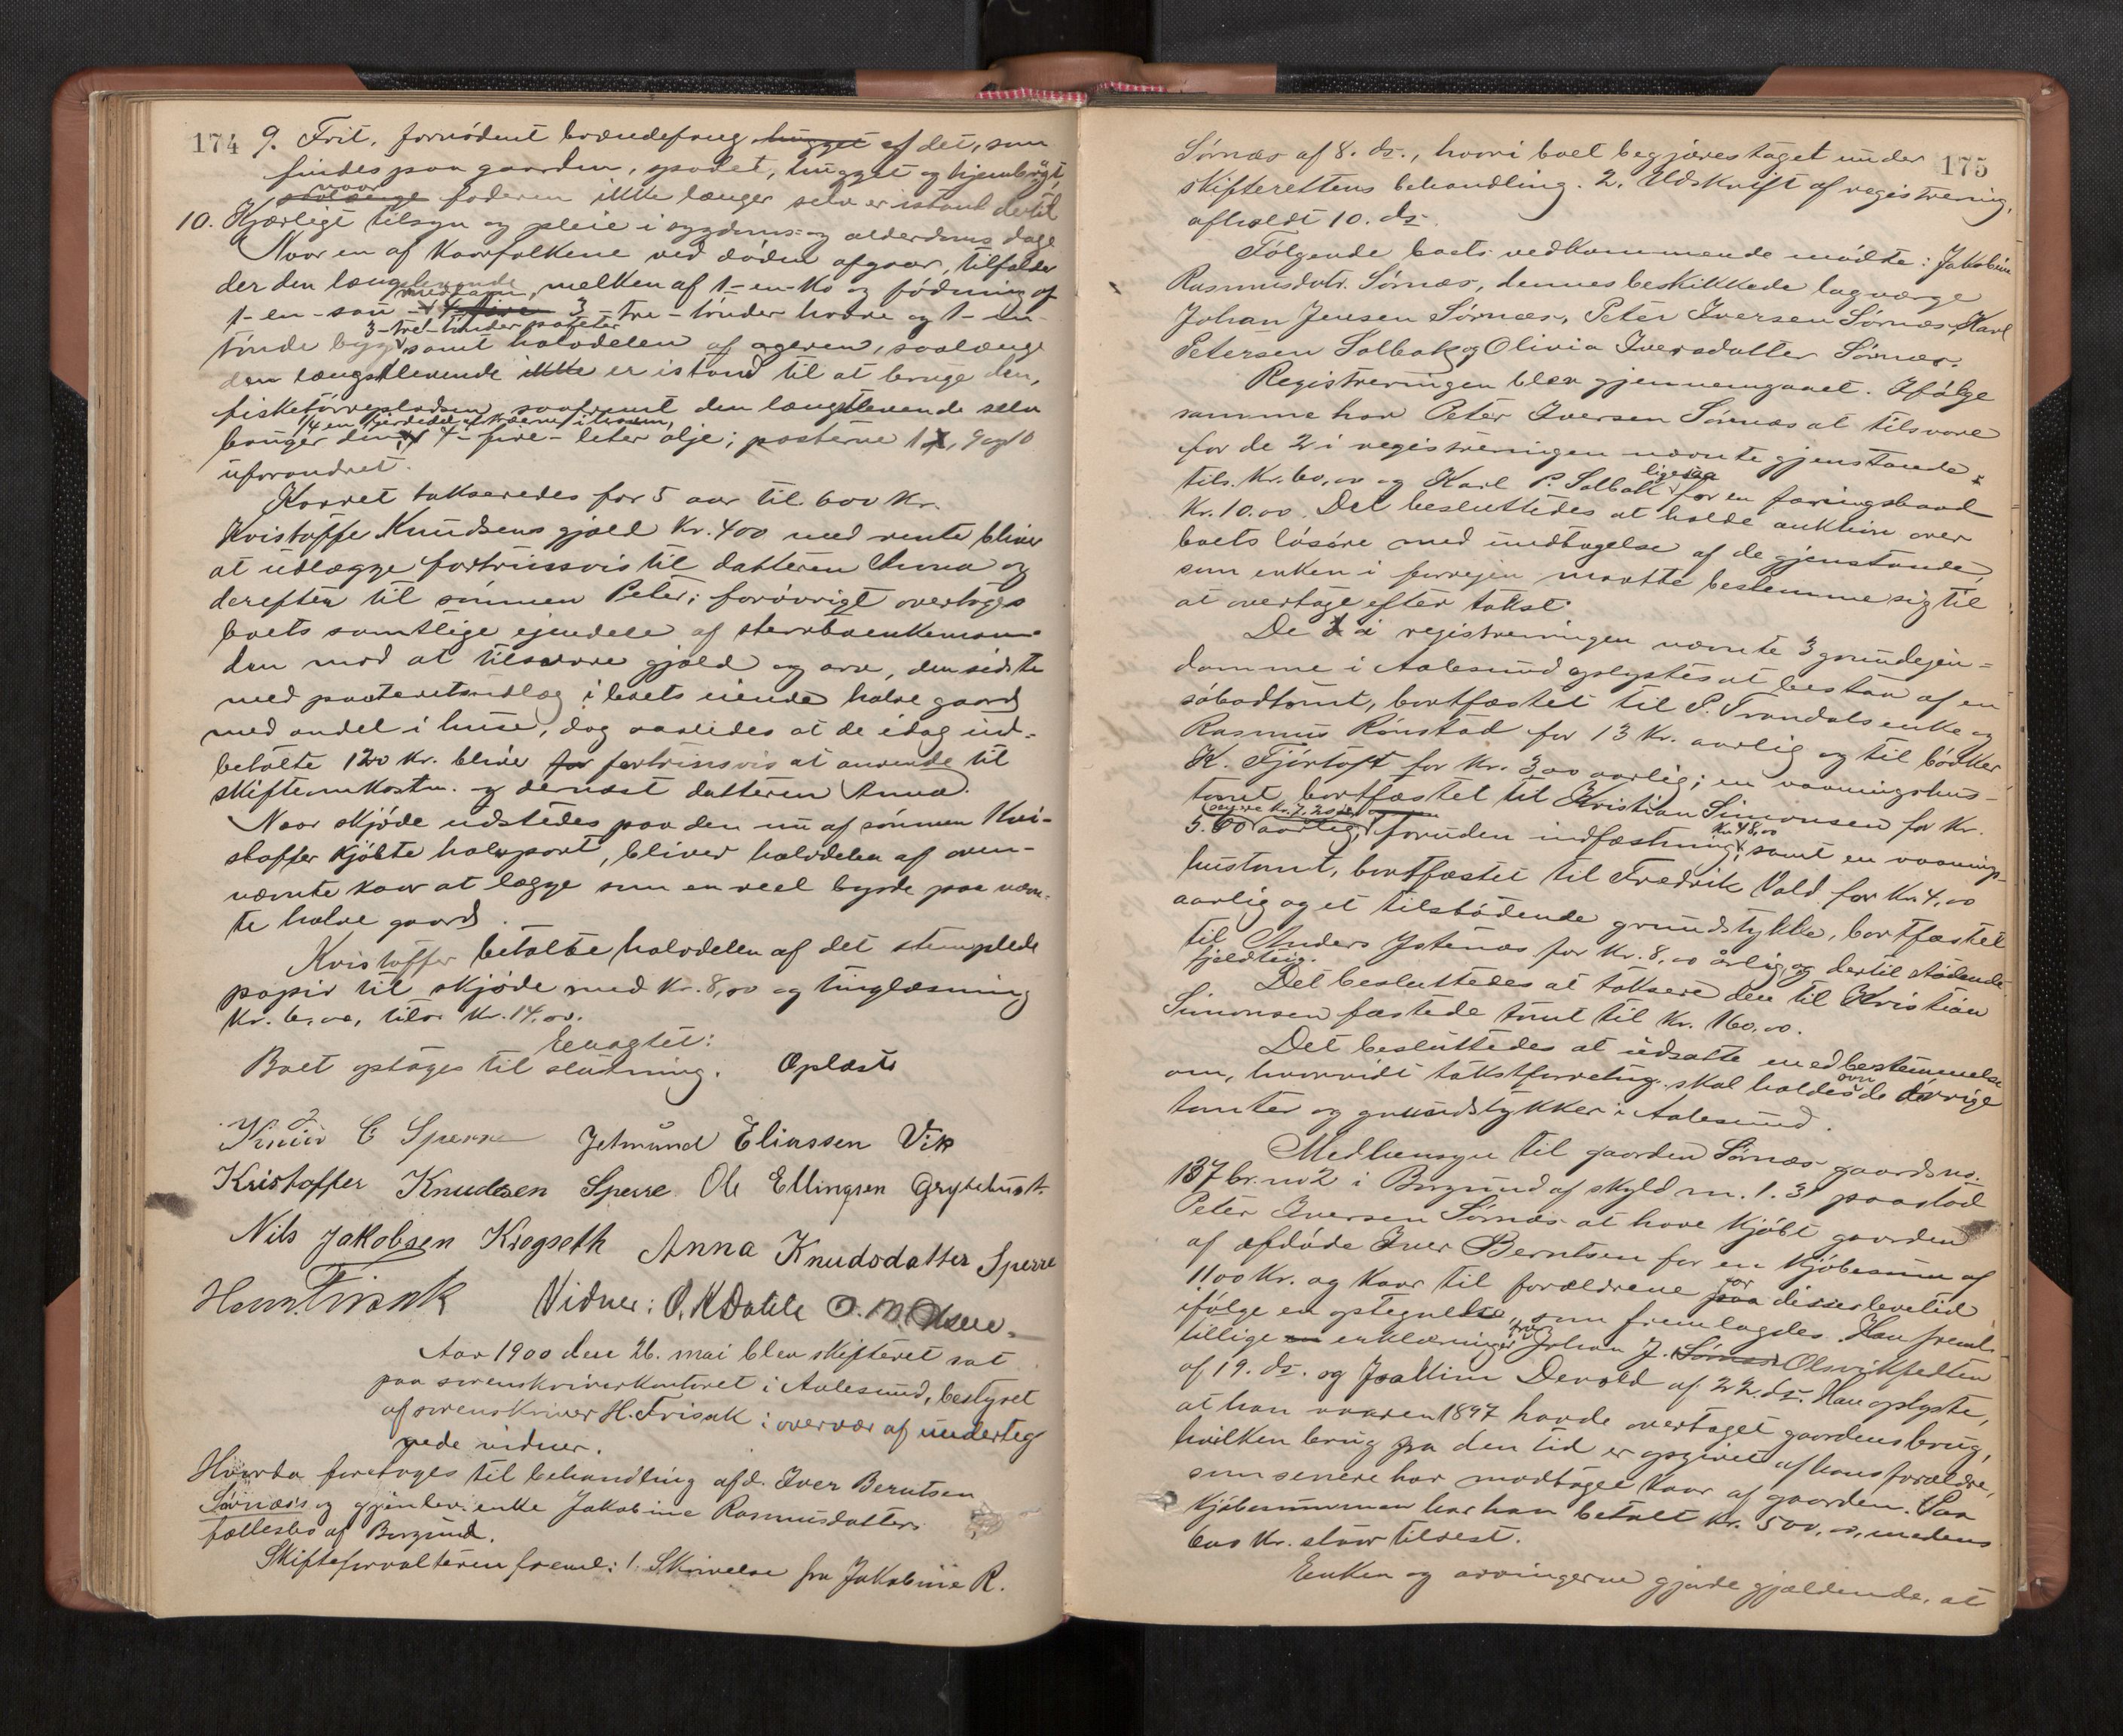 174
9. Frit, fornödent brændefang hugget af det, som
findes paa gaarden, spadet, hugget og hjembragt,
naar
saalænge faderen ikke længer selv er istand dertil
10. Kjærligt tilsyn og pleie i sygdoms- og alderdoms dage
Naar en af kaarfolkene ved döden afgaar, tilfalder
der den længstlevende melken af 1-en-ko og födning af
1-en-sau med lam, 3-tre-tönder havre og 1-en-
3-tre-tönder poteter
tönde byg samt halvdelen af ageren, saalænge
den længstlevende ikke er istand til at bruge den,
fisketörrepladsen saafremt den længstlevende selv
1/4 en fjerdedel af
bruger den, 4-fire-leter olje; posterne 9 og 10
uforandret.
Kaaret takseredes for 5 aar til 600 kr.
Kristoffer Knudsens gjæld kr. 400 med rente bliver
at udlægge fortrinsvis til datteren Anna og
derefter til sönnen Peter; forövrigt overtoges
boets samtlige ejendele af sterboenkeman-
den mod at tilsvare gjæld og arv, den sidste
med panteretsudlæg i boets eiende halve gaard
med andel i huse, dog saaledes at de idag ud-
betalte 120 kr. bliver for fortrinsvis at anvende til
skifteomkostn. og dernæst datteren Anna.
Naar skjöde udstedes paa den nu af sönnen Kri-
stoffer kjöbte halvpart, bliver halvdelen af oven-
nævnte kaar at lægge som en reel byrde paa næv-
te halve gaard.
Kristoffer betalte halvdelen af det stemplede
papir til skjöde med kr. 8,00 og tinglæsning
kr. 6,00, tils. kr. 14,00.
Eenagtet:
Boet optages til slutning. Oplæst
Knud E Sperre Jetmund Eliassen Vik
Kristoffer Knudsen Sperre Ole Ellingsen Grytehust.
Nils Jakobsen Krogseth Anna Knudsdatter Sperre
Hans Frisak Vidner: O. K Datele O. M. Olsen.
Aar 1900 den 26. mai blev skifteret sat
paa sorenskriverkontoret i Aalesund, bestyret
af sorenskriver H. Frisak i overvær af underteg
nede vidner.
Hvorda foretoges til behandling afd. Iver Berntsen
Sørnæs og gjenlev. enke Jakobine Rasmusdatters
fællesbo af Borgund.
Skifteforvalteren freml: 1. Skrivelse fra Jakobine R.
175
Sørnæs af 8. ds., hvori boet begjæres taget under
skifterettens behandling. 2. Udskrift af registrering,
afholdt 10. ds.
Følgende boets vedkommende mødte: Jakobine
Rasmusdotr. Sørnæs, dennes beskikkede lagværge
Johan Jensen Sørnæs, Peter Iversen Sørnæs, Karl
Petersen Solbak og Olivia Iversdatter Sørnæs.
Registreringen blev gjennemgaaet. Ifølge
samme har Peter Iversen Sørnæs at tilsvare
for de 2 i registreringen nævnte gjenstande
ligesaa
tils. kr. 60,00 og Karl P. Solbak for en færingsbaad
kr. 10.00. Det besluttedes at holde auktion over
boets løsøre med undtagelse af de gjenstande,
som enken i forvejen maatte bestemme sig til
at overtage efter takst.
De i registreringen nævnte 3 grundejen=
domme i Aalesund oplystes at bestaa af en
søbodtomt, bortfæstet til P. Trandals enke og
Rasmus Rønstad for 13 kr. aarlig og til bødker
K. Fjørtoft for kr. 3,00 aarlig; en vaaningshus-
tomt, bortfæstet til Kristian Simonsen for kr.
senere kr. 7.20
kr. 48,00
5.60 aarlig, foruden indfæstning, samt en vaanings-
hustomt, bortfæstet til Fredrik Vold for kr. 4,00
aarlig og et tilstødende grundstykke, bortfæstet
til Anders Jstenæs for kr. 8,00 årlig, og dertil stødende
fjeldteig.
Det besluttedes at taksere den til Kristian
Simonsen fæstede tomt til kr. 160,00.
Det besluttedes at udsætte med bestemmelse
over
om, hvorvidt takstforretng. skal holdes de øvrige
tomter og grundstykker i Aalesund.
Medhensyn til gaarden Sørnæs gaardsno.
137 br. no 2 i Borgund af skyld m. 1.31 paastod
Peter Iversen Sørnæs at have kjøbt gaarden
af afdøde Iver Berntsen for en kjøbesum af
for
1100 kr. og kaar til forældrene paa disses levetid
ifølge en optegnelse, som fremlagdes. Han freml.
fra
tillige en erklæringer Johan J. Sørnæs Olsvikfedten
af 19. ds. og Joakim Devold af 22. ds. Han oplyste,
at han vaaren 1897 havde overtaget gaardens brug,
hvilken brug fra den tid er opgivet af hans forældre,
som senere har modtaget kaar af gaarden. Paa
kjøbesummen har han betalt kr. 500,00, medens
600 kr. staar tilrest.
Enken og arvingerne gjorde gjældende, at